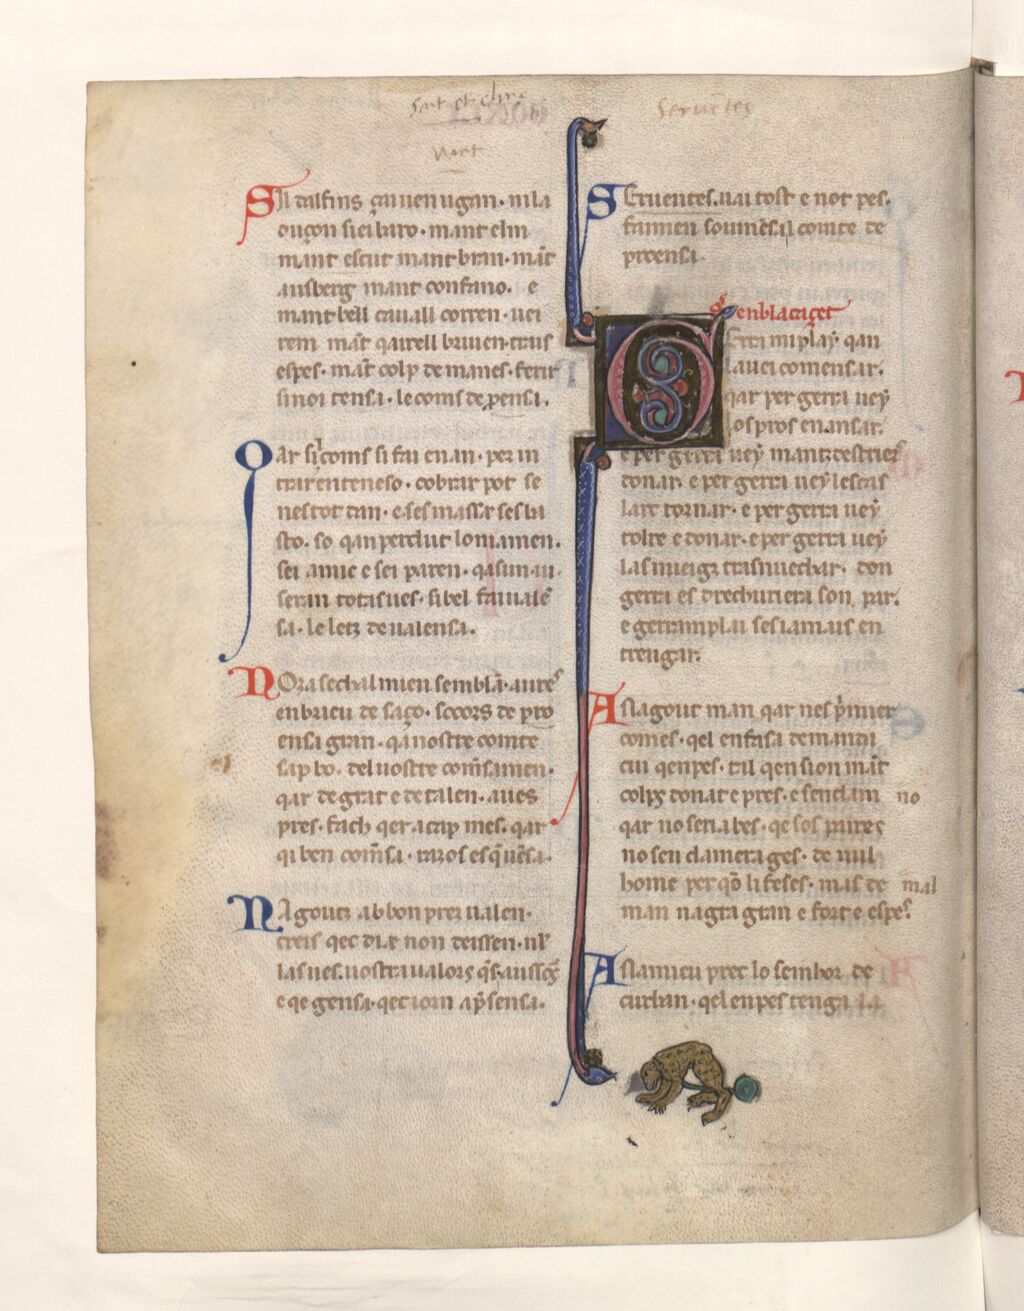 Seruētes
SIl dalfins ça uen ugan. ni la
ouçon si ei baro. mant elm
mant escut mant bran. māt
ausberg mant confano. e
mant bell cauall corren. uei
rem māt qairell
espes. māt colp de manes. ferir
si noi tensa. le coms de pensa.
QAr si coms si fai enan. per in
trar en teneso. cobrar pot se
nes tot dan.
sto. so qan perdut loniamen.
sei amic e sei paren. qasun ui
seran totas ues. si bel fai ualē
sa. le letz de ualensa.
NOra sechal mieu semblā. aures
en brieu de saço. socors de pro
ensa gran. qā nostre comte
sap bo. del uostre comēsamen.
qar de grat e de talen. aues
pres. fach qer a cap mes. qar
qi ben comēsa. razos es qē uēsa.
NAgoutz ab bon prez ualen.
creis qec dia e non deissen. nl
las ues. uostra ualors
e qe gensa. qec iorn
SEruentes. uai tost e not pes.
fa men soumes. al comte de
proensa.
en blacacet
Gerra mi play qan
la uei comensar.
qar per gerra uey
los pros enansar.
e per gerra uey mantz destriers
donar. e per gerra uey lescas
larc tornar. e per gerra uey
tolre e donar. e per gerra uey
las nueigz trasnuechar. don
gerra es drechuriera som par.
e gerram plai ses iamais en
treugar.
ASlagout man qar nes primier
comes. qel enfasa demanda
cui qen pes. tal qen sion māt
colps donat e pres. e sen clam no
qar no seria bes. qe sos paires
no sen clamera ges. de nul
home per qō li feses. mas de mal
man nagra gran e fort e espes.
AStamicu prec lo senhor de
curban. qel en pes tenga la